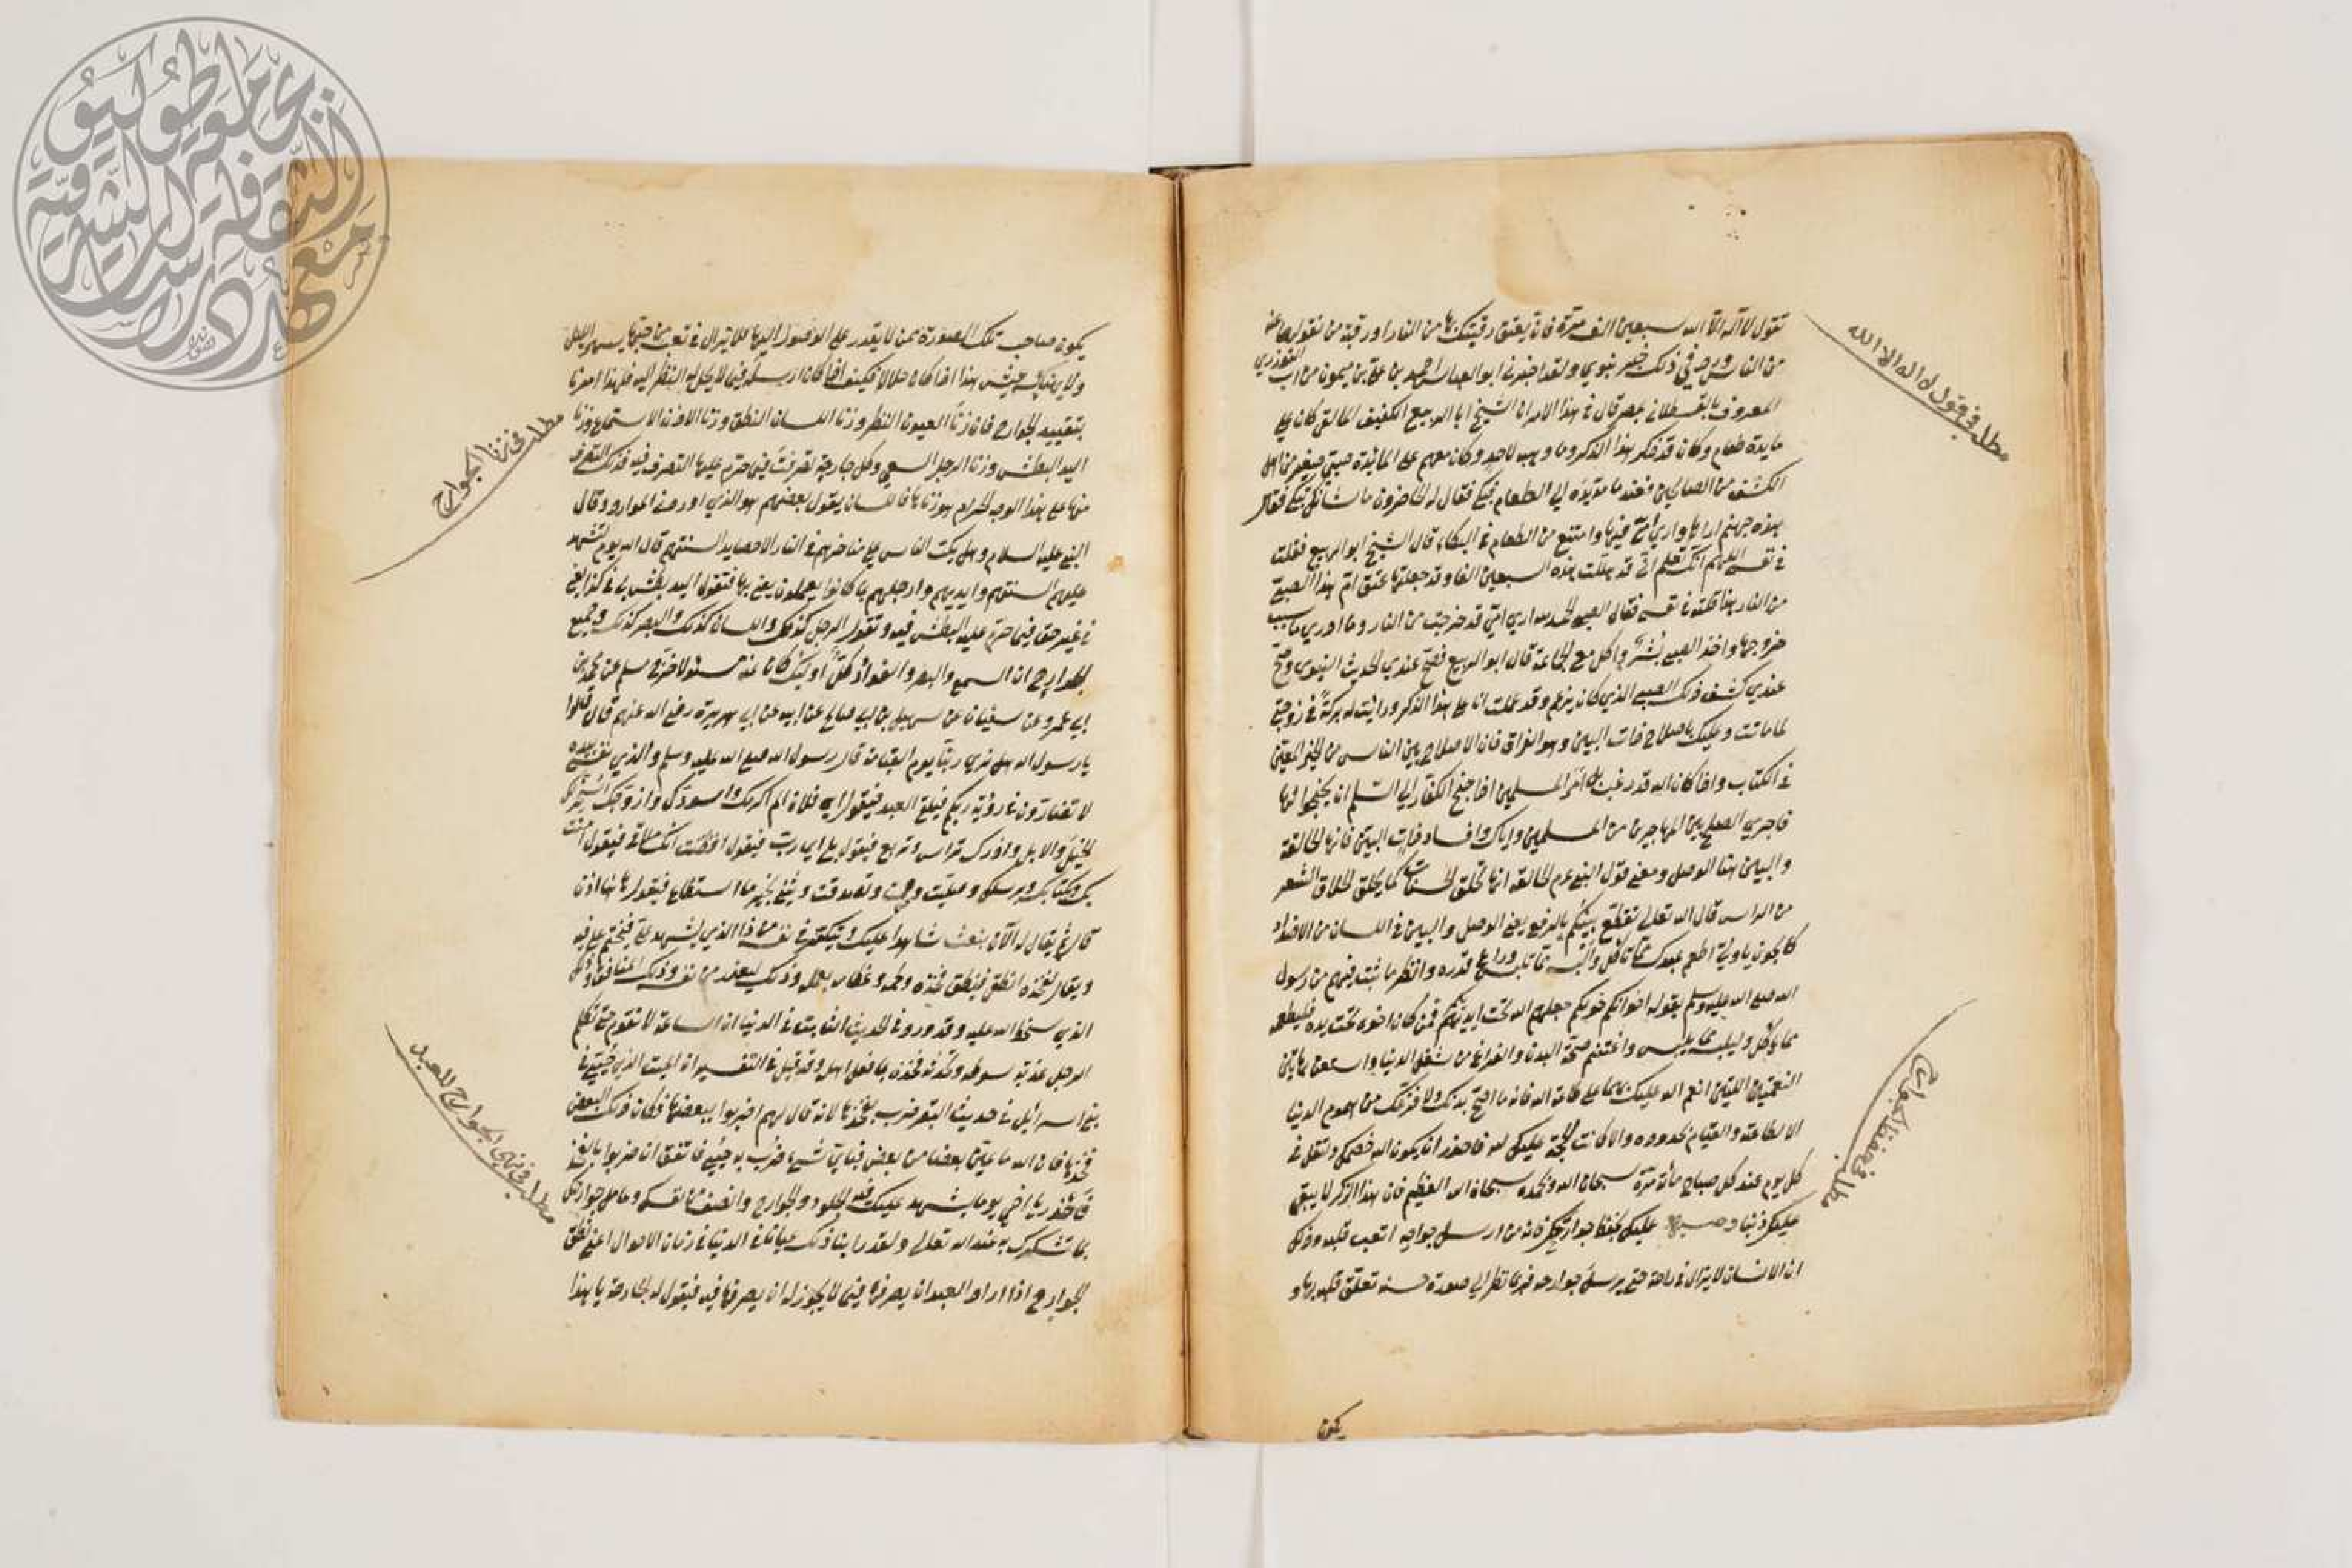 تقول لا اله الا الله سبعين الف مرة فان الله يعتق رقبتك بها من النار او رقبة من تقولها عنه
من الناس ورد في ذلك خبر نبوي ولقد اخبرني ابو العباس احمد بن علي بن ميمون من اب التوزري
المعروف بالقسطلاني بمصر قال في هذا الامر ان الشيخ ابا الربيع الكفيف المالقي كان على
مايدة طعام وكان قد ذكر هذا الذكر وما وهبه لاحد وكان معهم على المائدة صبي صغير من اهل
الكشف من الصالحين فعندما مد يده الى الطعام بكى فقال له الحاضرون ما شانك تبكي فقال
هذه جهنم اراها وارى امي فيها وامتنع من الطعام في البكاء قال الشيخ ابو الربيع فقلت
في نفسي اللهم انك تعلم اني قد هللت بهذه السبعين الفا وقد جعلتها عتق ام هذا الصبي
من النار هذا قلته في نفسي فقال الصبي الحمد لله ارى امي قد خرجت من النار وما ادري ما سبب
خروجها واخذ الصبي يسر واكل مع الجماعة قال ابو الربيع فصح عندي الحديث النبوي وصح
عندي كشف ذلك الصبي الذي كان يزعم وقد عملت انا على هذا الذكر ورايت له بركة في زوجتي
لما ماتت وعليك باصلاح ذات البين وهو الفراق فان الاصلاح بين الناس من الخير المعين
في الكتاب واذا كان الله قد رغب بل امر المسلمين اذا جنح الكفار الى السلم ان يجنحوا لها
فاحرى الصلح بين المتهاجرين من المسلمين واياك وافساد ذات البين فانها الحالقة
والبين هنا الوصل ومعنى قول النبي عم الحالقة انها تحلق الحسنات كما يحلق الحلاق الشعر
من الراس قال الله تعالى تقطع بينكم بالرفع يعني الوصل والبين في اللسان من الاضداد
كالجون يا وليي اطعم عبدك مما تاكل والبسه مما تلبس وراع قدره وانظر ما ثبت فيهم من رسول
الله صلى الله عليه وسلم بقوله اخوانكم خولكم جعلهم الله تحت ايديكم فمن كان اخوه تحت يده فليطعمه
مما ياكل وليلبسه مما يلبس واغتنم صحة البدن والفراغ من شغل الدنيا واستعن بهاتين
النعمتين اللتين انعم الله عليك بهما على طاعة الله فانه ما اصح بدنك ولا فرغك من هموم الدنيا
الا لطاعته والقيام بحدوده والا كانت الحجة عليك لله فاحذر ان يكون الله خصمك ولتقل في
كل يوم عند كل صباح مائة مرة سبحان الله وبحمده سبحان الله العظيم فان هذا الذكر لا يبقي
عليك ذنبا وعليك بحفظ جوارحك فانه من ارسل جوارحه اتعب قلبه وذلك
ان الانسان لا يزال في راحة حتى يرسل جوارحه فربما نظر الى صورة حسنة تعلق قلبه بها و
يكون
مطلب في قول لا اله الا الله
مطلب في حفظ الجوارح
يكون صاحب تلك الصورة ممن لا يقدر على الوصول اليها فلا يزال في تعب من حبها يسهر الليل
ولا يهنا له عيش هذا اذا كان حلالا فكيف اذا كان ارسله فيما لا يحل له النظر اليه فلهذا امرنا
بتقييد الجوارح فان زنا العيون النظر وزنا اللسان النطق وزنا الاذن الاستماع وزنا
اليد البطش وزنا الرجل السعي وكل جارحة تصرفت فيما حرم عليها التصرف فيه فذلك التصرف
منها على هذا الوجه الحرام هو زناها فاللسان يقول بعضهم هو الذي اوردني الموارد وقال
النبي عليه السلام وهل يكب الناس على مناخرهم في النار الا حصايد السنتهم قال الله يوم تشهد
عليهم السنتهم وايديهم وارجلهم بما كانوا يعملون يعني بها فتقول اليد بطش بي في كذا يعني
في غير حق فيما حرم عليه البطش فيه وتقول الرجل كذلك واللسان كذلك والبصر كذلك وجميع
الجوارح ان السمع والبصر والفؤاد كل اولئك كان عنه مسئولا خرج مسلم عن محمد بن
ابي عمر وعن سفيان عن سهيل بن ابي صالح عن ابيه عن ابي هريرة رضي الله عنهم قال قالوا
يا رسول الله هل نرى ربنا يوم القيامة قال رسول الله صلى الله عليه وسلم والذي نفسي بيده
لا تضارون في رؤية ربكم فيلقى العبد فيقول اي فلان الم اكرمك واسودك وازوجك واسخر لك
الخيل والابل واذرك تراس وتربع فيقول بلى اي رب فيقول افظننت انك ملاقي فيقول امنت
بك وبكتابك وبرسلك وصليت وصمت وتصدقت ويثني بخير ما استطاع فيقول هاهنا اذن
قال ثم يقال له الان نبعث شاهدا عليك ويتفكر في نفسه من ذا الذي يشهد علي فيختم على فيه
ويقال لفخذه انطقي فينطق فخذه ولحمه وعظامه بعمله وذلك ليعذر من نفسه وذلك المنافق وذلك
الذي سخط الله عليه وقد ورد في الحديث الثابت في الدنيا ان الساعة لا تقوم حتى تكلم
الرجل عذبة سوطه وتحدثه فخذه بما فعل اهله وقد قيل في التفسير ان الميت الذي احيي في
بني اسرائيل في حديث البقر ضرب بفخذها لانه قال لهم اضربوه ببعضها وكان ذلك البعض
فخذها فان الله ما عين بعضا من بعض فباي شيء ضرب به حيي فاتفق ان ضربوا بالفخذ
فاحذر يا اخي يوما يشهد عليك فيه الجلود والجوارح وانصف من نفسك وعامل جوارحك
بما تشكرك به عند الله تعالى ولقد راينا ذلك عيانا في الدنيا في زمان الاحوال اعني نطق
الجوارح اذا اراد العبد ان يصرفها فيما لا يجوز له ان يصرفها فيه فيقول له الجارحة يا هذا
مطلب في زنا الجوارح
مطلب في الجوارح للعبد
معهد دراسات الثقافة الشرقية بجامعة طوكيو